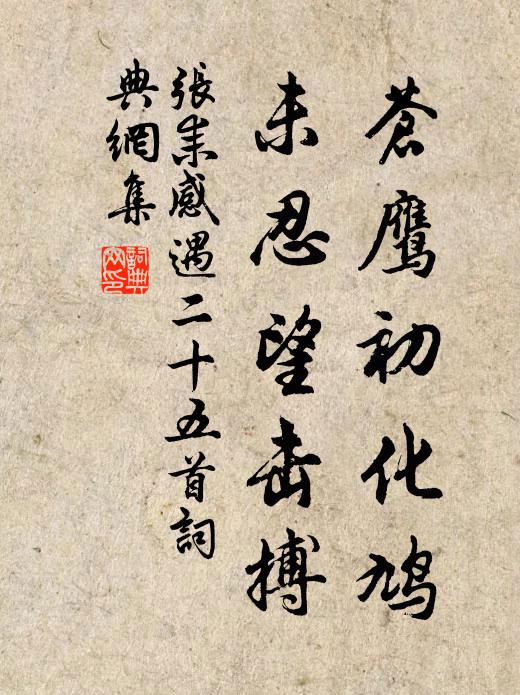 蒼鹰初化鳩
未忍望击搏
張耒感遇二十五首詞
典網集
詞典